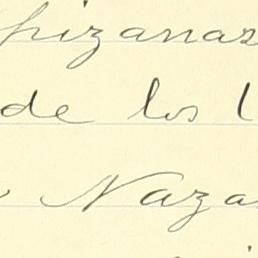 pizanas
de los
Naza